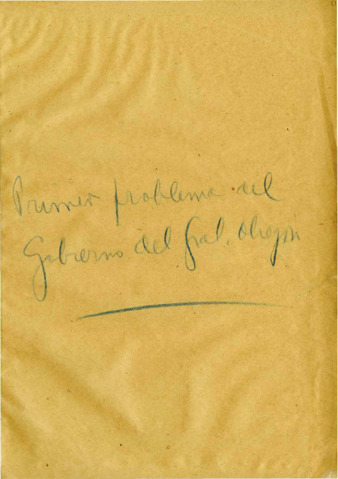 Primer problema del
Gobierno del Gral. Obregón